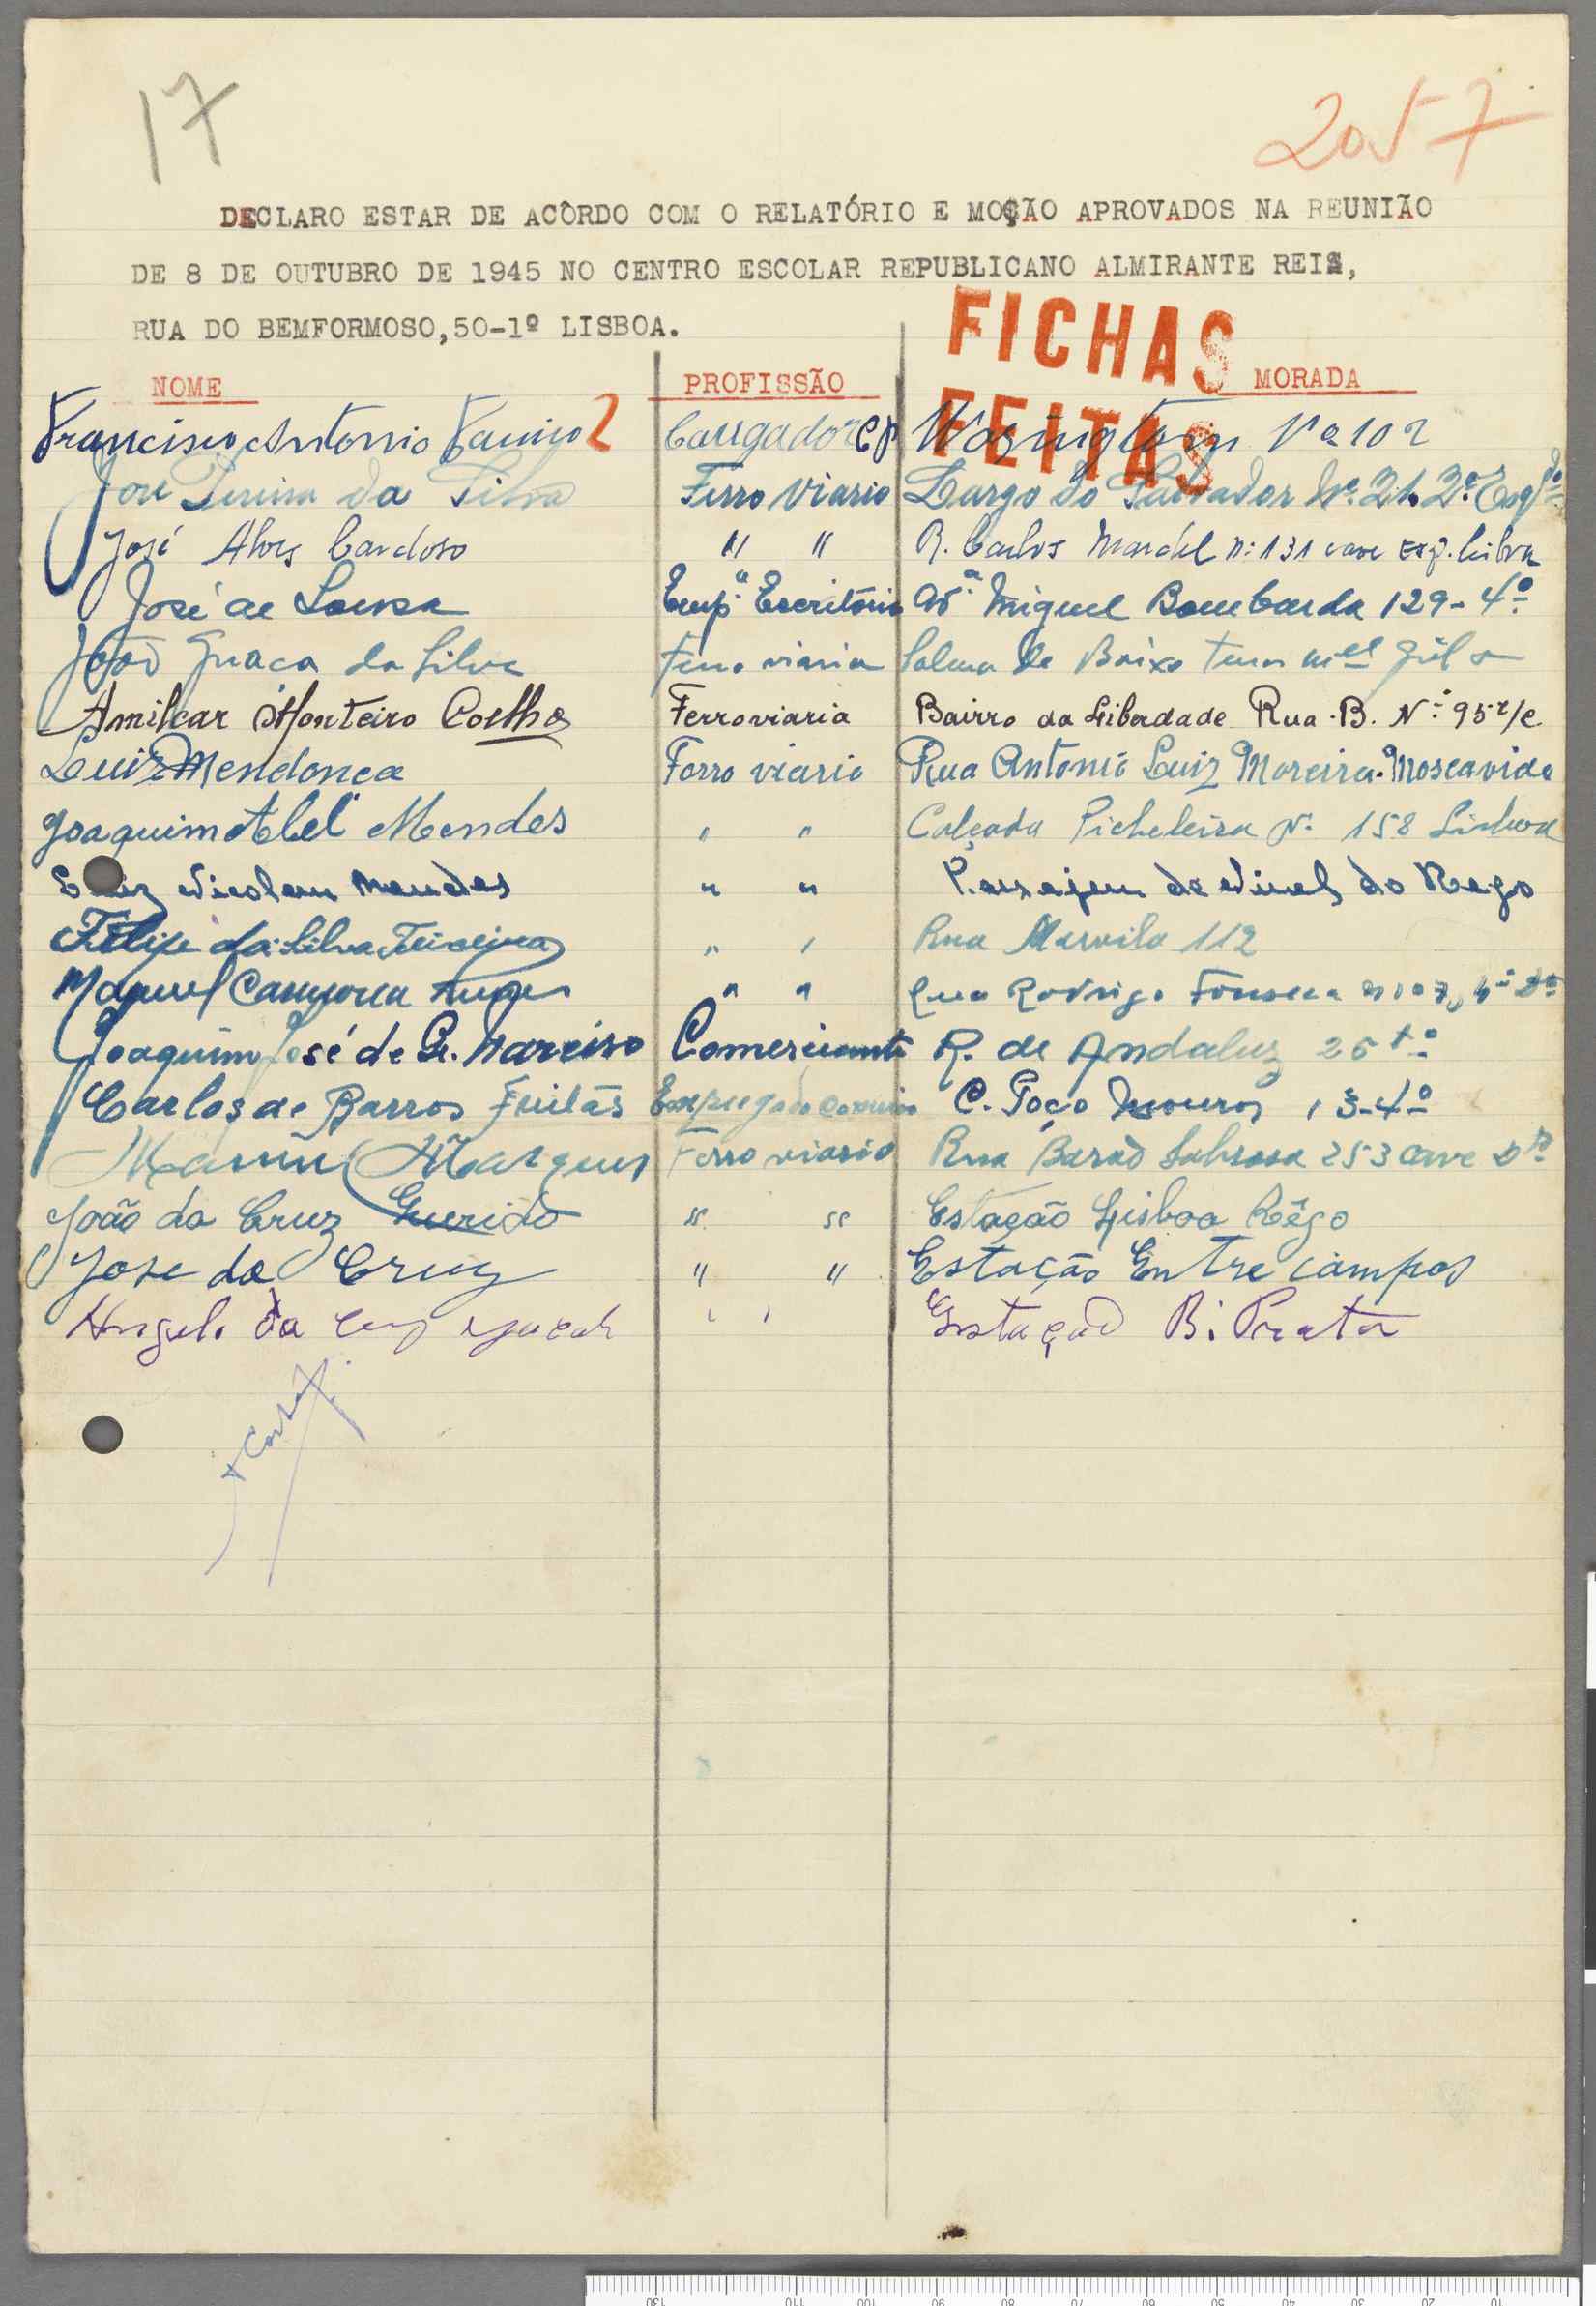 17
2057
DECLARO ESTAR DE ACÔRDO COM O RELATÓRIO E MOÇÃO APROVADOS NA REUNIÃO
DE 8 DE OUTUBRO DE 1945 NO CENTRO ESCOLAR REPUBLICANO ALMIRANTE REIS,
RUA DO BEMFORMOSO,50-1º LISBOA.
FICHAS
FEITAS
NOME PROFISSÃO MORADA
Francisco Antonio 2 Carregador CP Nº 102
José Pereira da Silva Ferro Viario Largo do Salvador Nº 21 2º Esqdo
José Alves Cardoso " " R. Carlos Mardel nº 131 cave Esq. Lisboa
José de Sousa Empº Escritório Avª Miguel Bombarda 129-4º
João da Silva Ferroviario Palma de Baixo
Amilcar Monteiro Coelho Ferroviario Bairro da Liberdade Rua B. Nº 95 r/c
Luiz Mendonca Ferro viario Rua Antonio Luiz Moreira-Moscavide
Joaquim Abel Mendes " " Calçada Picheleira Nº 158 Lisboa
Luiz Nicolau Mendes " " Passajem de Nivel do Rego
Felipe da Silva Teixeira " " Rua Marvila 112
Manuel " " Rua Rodrigo Fonseca 4º Dº
Joaquim José de Narciso Comerciante R. de Andaluz
Carlos de Barros Freitas Empregado C. Poço Mouros 13-4º
Manuel Marques Ferro viario Rua Barão Sabrosa 253 cave Dto
João da Cruz " " Estação Lisboa Rêgo
Jose da Cruz " " Estação Entre campos
Angelo da Cruz " " Estação B. Prata